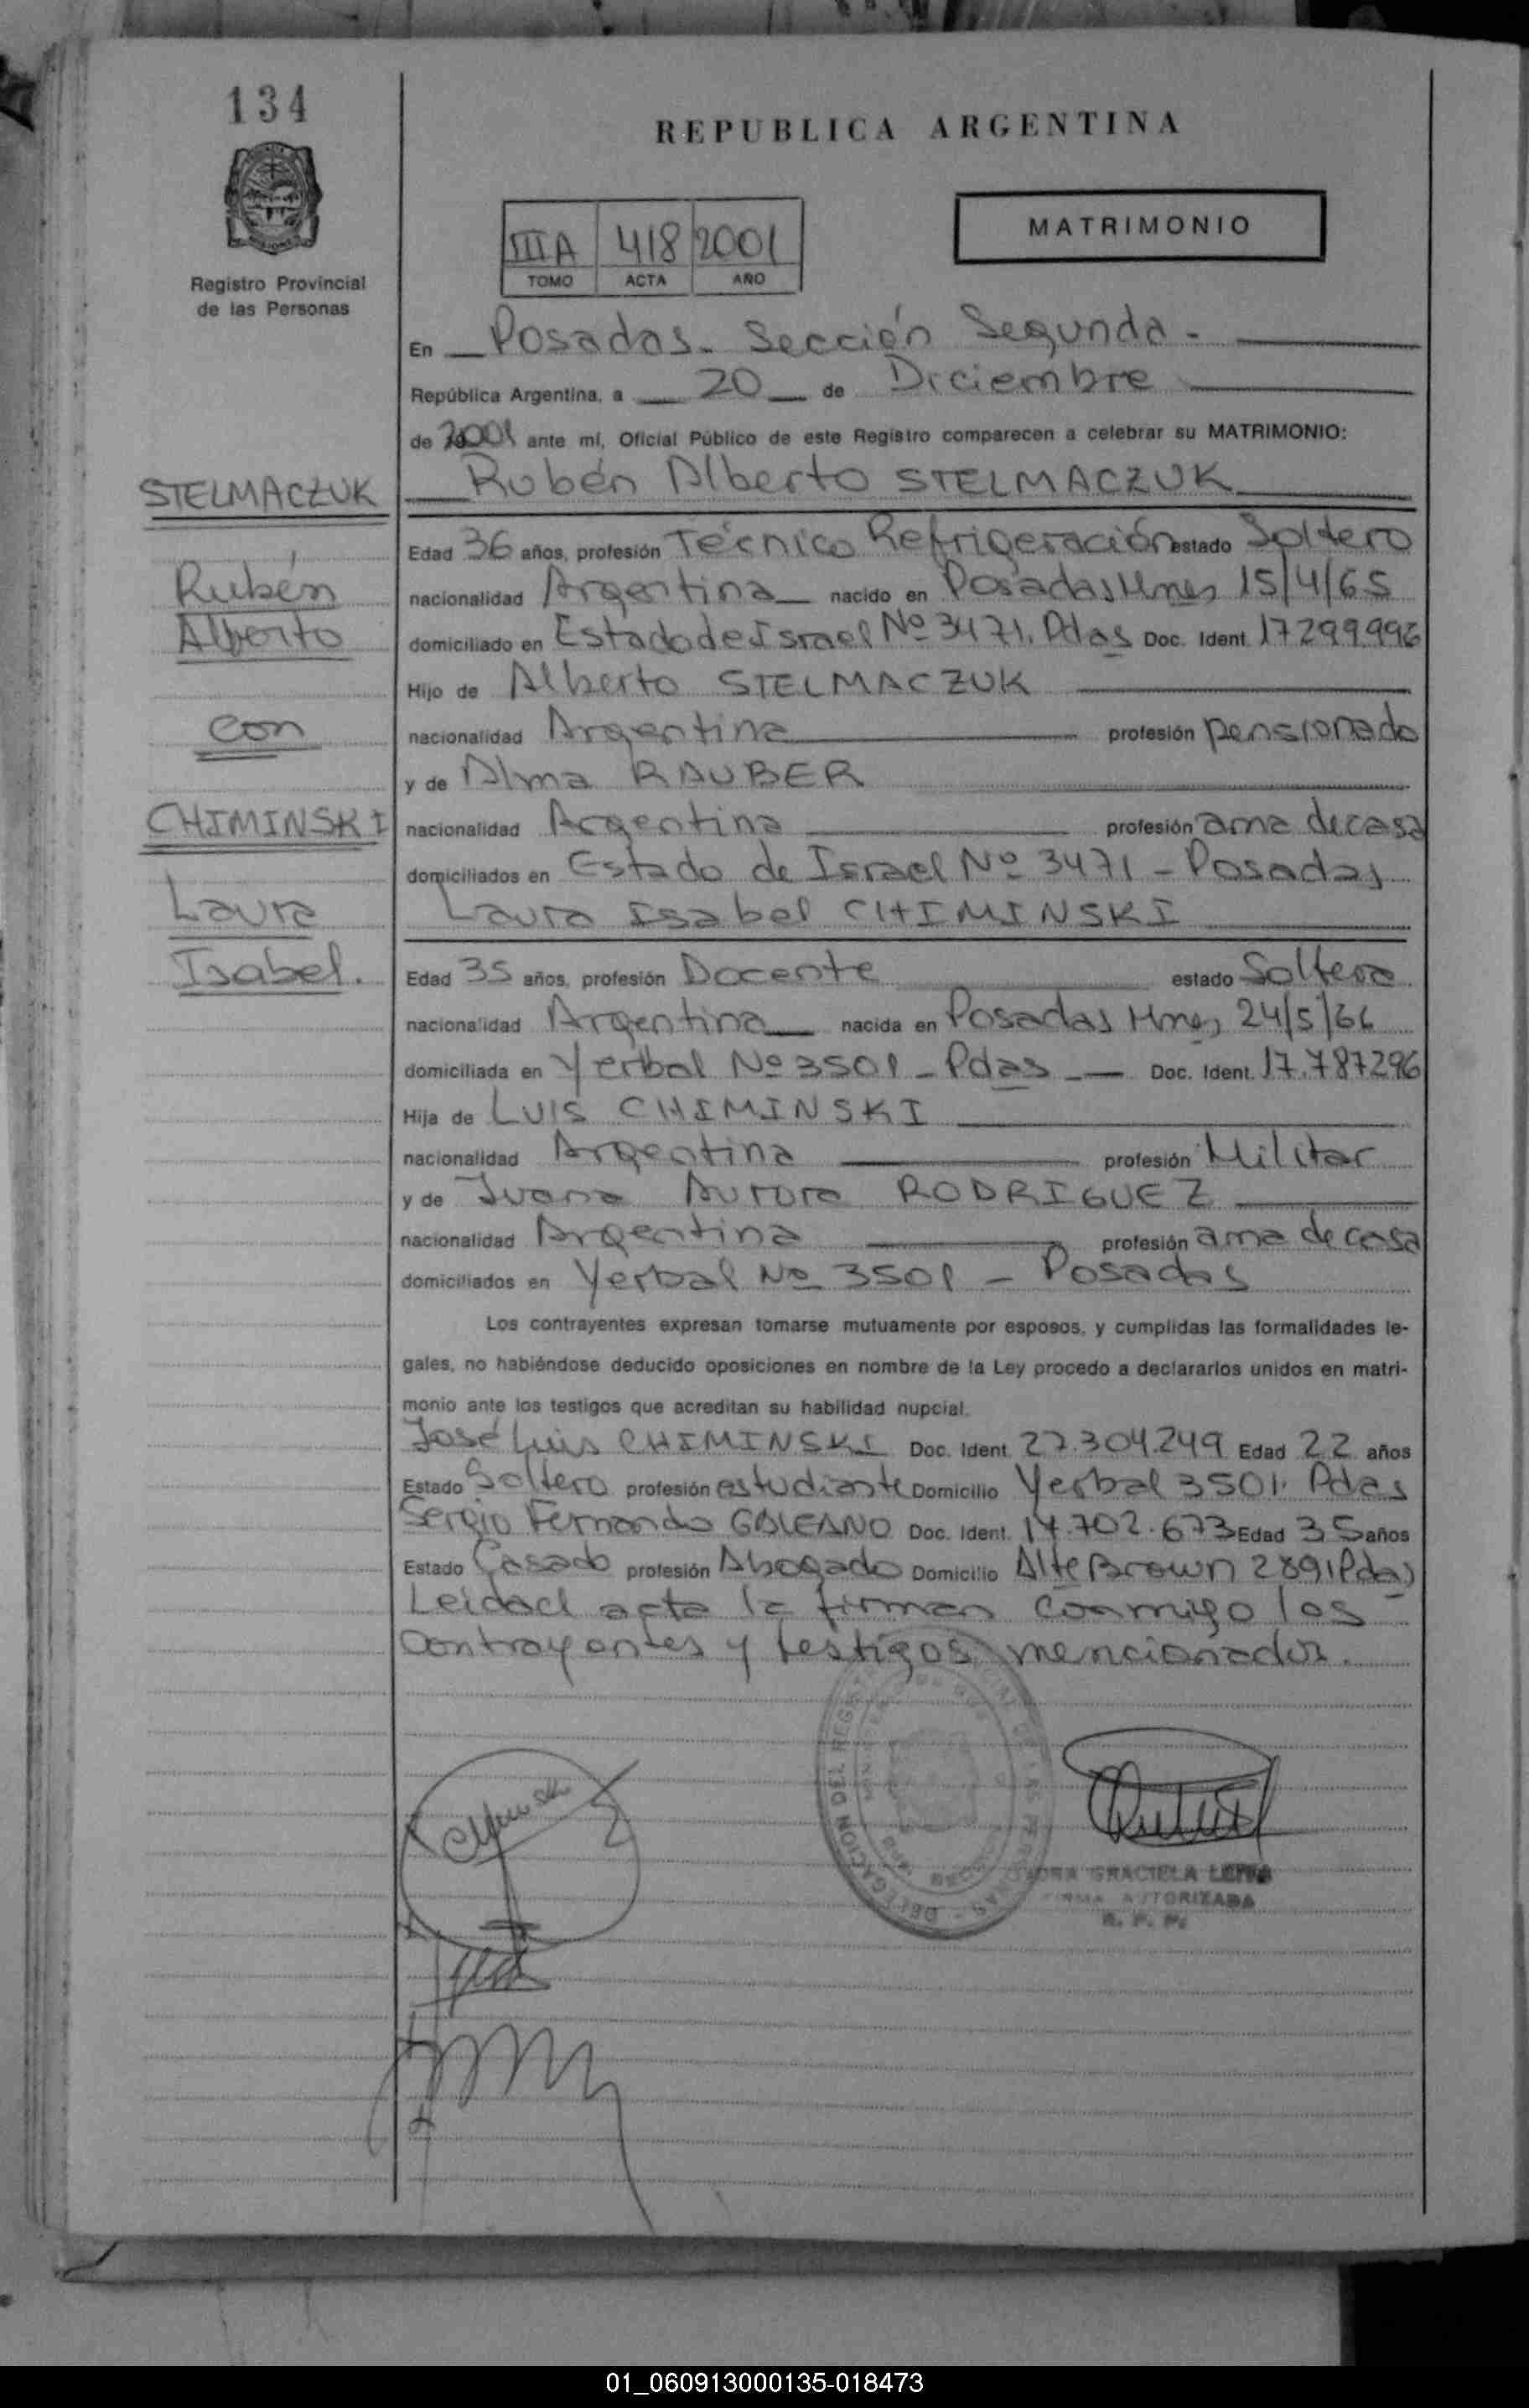 134
REPUBLICA ARGENTINA
MATRIMONIO
IIIA 418 2001
TOMO ACTA AÑO
Registro Provincial
de las Personas
En Posadas. Sección Segunda.
República Argentina, a 20 de Diciembre
de 2001 ante mí, Oficial Público de este Registro comparecen a celebrar su MATRIMONIO:
STELMACZUK
Rubén Alberto STELMACZUK
Edad 36 años, profesión Técnico Refrigeración estado Soltero
Rubén
nacionalidad Argentina nacido en Posadas Mnes 15/4/65
Alberto
domiciliado en Estado de Israel Nº 3471. Pdas Doc. Ident. 17299996
Hijo de Alberto STELMACZUK
con
nacionalidad Argentina profesión pensionado
y de Alma RAUBER
CHIMINSKI
nacionalidad Argentina profesión ama de casa
domiciliados en Estado de Israel Nº 3471 - Posadas
Laura
Laura Isabel CHIMINSKI
Isabel.
Edad 35 años, profesión Docente estado Soltera
nacionalidad Argentina nacida en Posadas Mnes 24/5/66
domiciliada en Yerbal Nº 3501 - Pdas - Doc. Ident. 17.787296
Hija de LUIS CHIMINSKI
nacionalidad Argentina profesión Militar
y de Juana Aurora RODRIGUEZ
nacionalidad Argentina profesión ama de casa
domiciliados en Yerbal Nº 3501 - Posadas
Los contrayentes expresan tomarse mutuamente por esposos, y cumplidas las formalidades le-
gales, no habiéndose deducido oposiciones en nombre de la Ley procedo a declararlos unidos en matri-
monio ante los testigos que acreditan su habilidad nupcial.
José Luis CHIMINSKI Doc. Ident. 27.304.249 Edad 22 años
Estado Soltero profesión estudiante Domicilio Yerbal 3501. Pdas
Sergio Fernando GALEANO Doc. Ident. 17.702.673 Edad 35 años
Estado Casado profesión Abogado Domicilio Alte Brown 2891 Pdas
Leida el acta la firman conmigo los
contrayentes y testigos mencionados.
GRACIELA LEIVA
FIRMA AUTORIZADA
R. P. P.
01_060913000135-018473